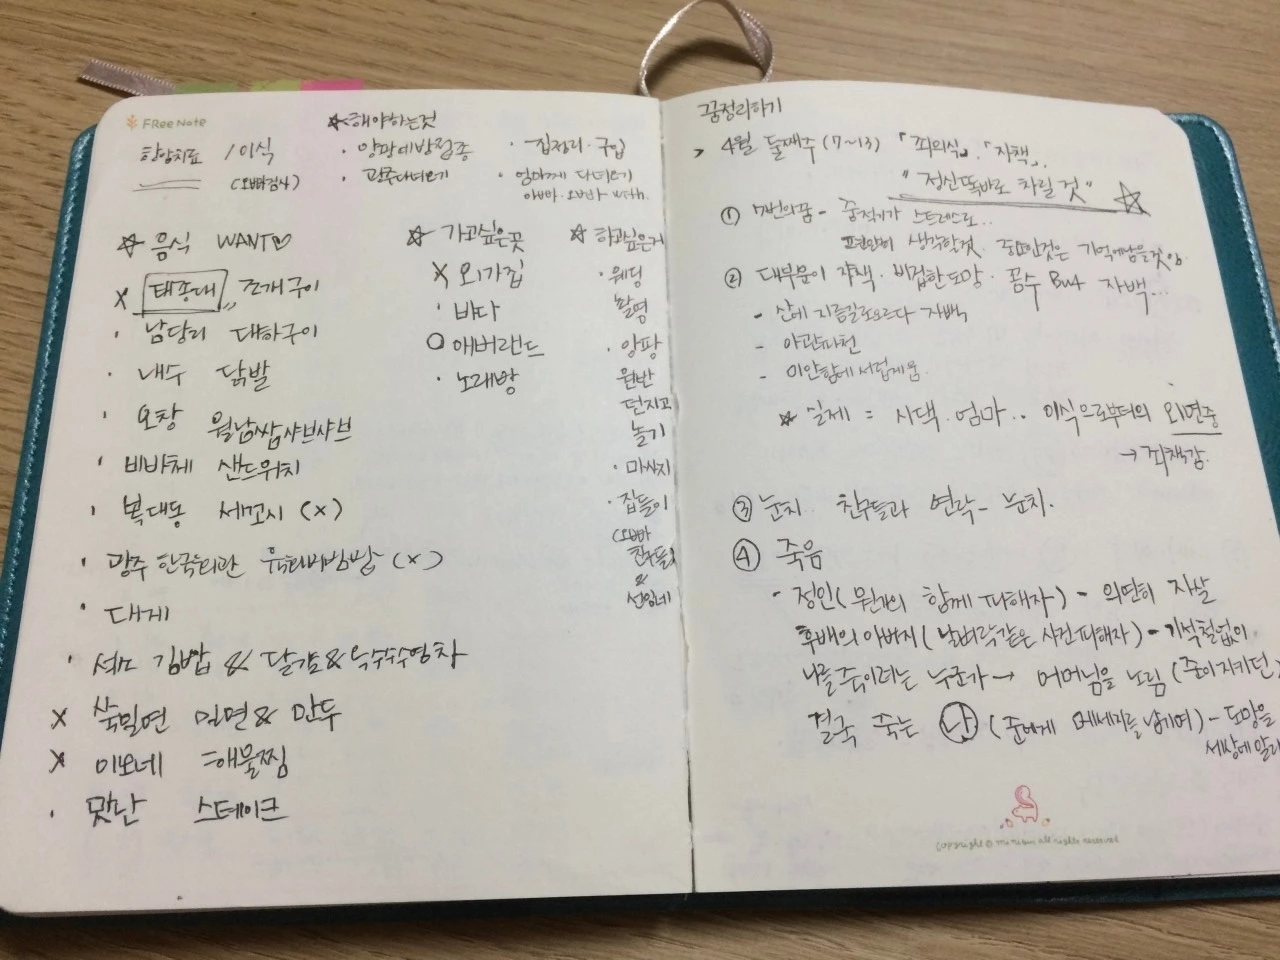 FRee Note
항암치료 / 이식
(오빠검사)
☆해야하는것
· 양팡예방접종
· 광주다녀오기
· 집정리·구입
· 엄마께 다녀오기
아빠·오빠 with.
☆ 음식 WANT♡
x 태종대 조개구이
· 남당리 대하구이
· 내수 닭발
· 오창 월남쌈샤브샤브
· 비바체 샌드위치
· 복대동 세꼬시 (x)
· 광주 한국회관 육회비빔밥 (x)
· 대게
· 김밥 & 달걀&옥수수수염차
x 밀면 & 만두
x 이모네 해물찜
· 맛난 스테이크
☆ 가고싶은곳
x 외가집
· 바다
O 에버랜드
· 노래방
☆ 하고싶은거
· 웨딩
촬영
· 양팡
원반
던지고
놀기
· 마싸지
· 집들이
(오빠
친구들
&
선임네
꿈정리하기
> 4월 둘째주 (7~13) 「죄의식」·「자책」..
"정신똑바로 차릴 것" ☆
① 7번의꿈 - 스트레스로..
생각할것. 중요한것은 기억에남을것임
② 대부분이 자책·비겁한도망·꼼수 But 자백...
- 산에 지름길로오르다 자백
-
- 미안함에 서럽게움.
☆ 실제 = 시댁·엄마.. 이식으로부터의 외면중
→ 죄책감.
③ 눈치.. 친구들과 연락 - 눈치.
④ 죽음
· 정인( 함께 피해자) - 의연히 자살
후배의 아버지(날벼락같은 사건피해자) -
나를 죽이려는 누군가 → 어머님을 노림 (준이지키던
결국 죽는 나 (준에게 메세지를 남기며) - 도망을
세상에 알리
Copyright © all rights reserved